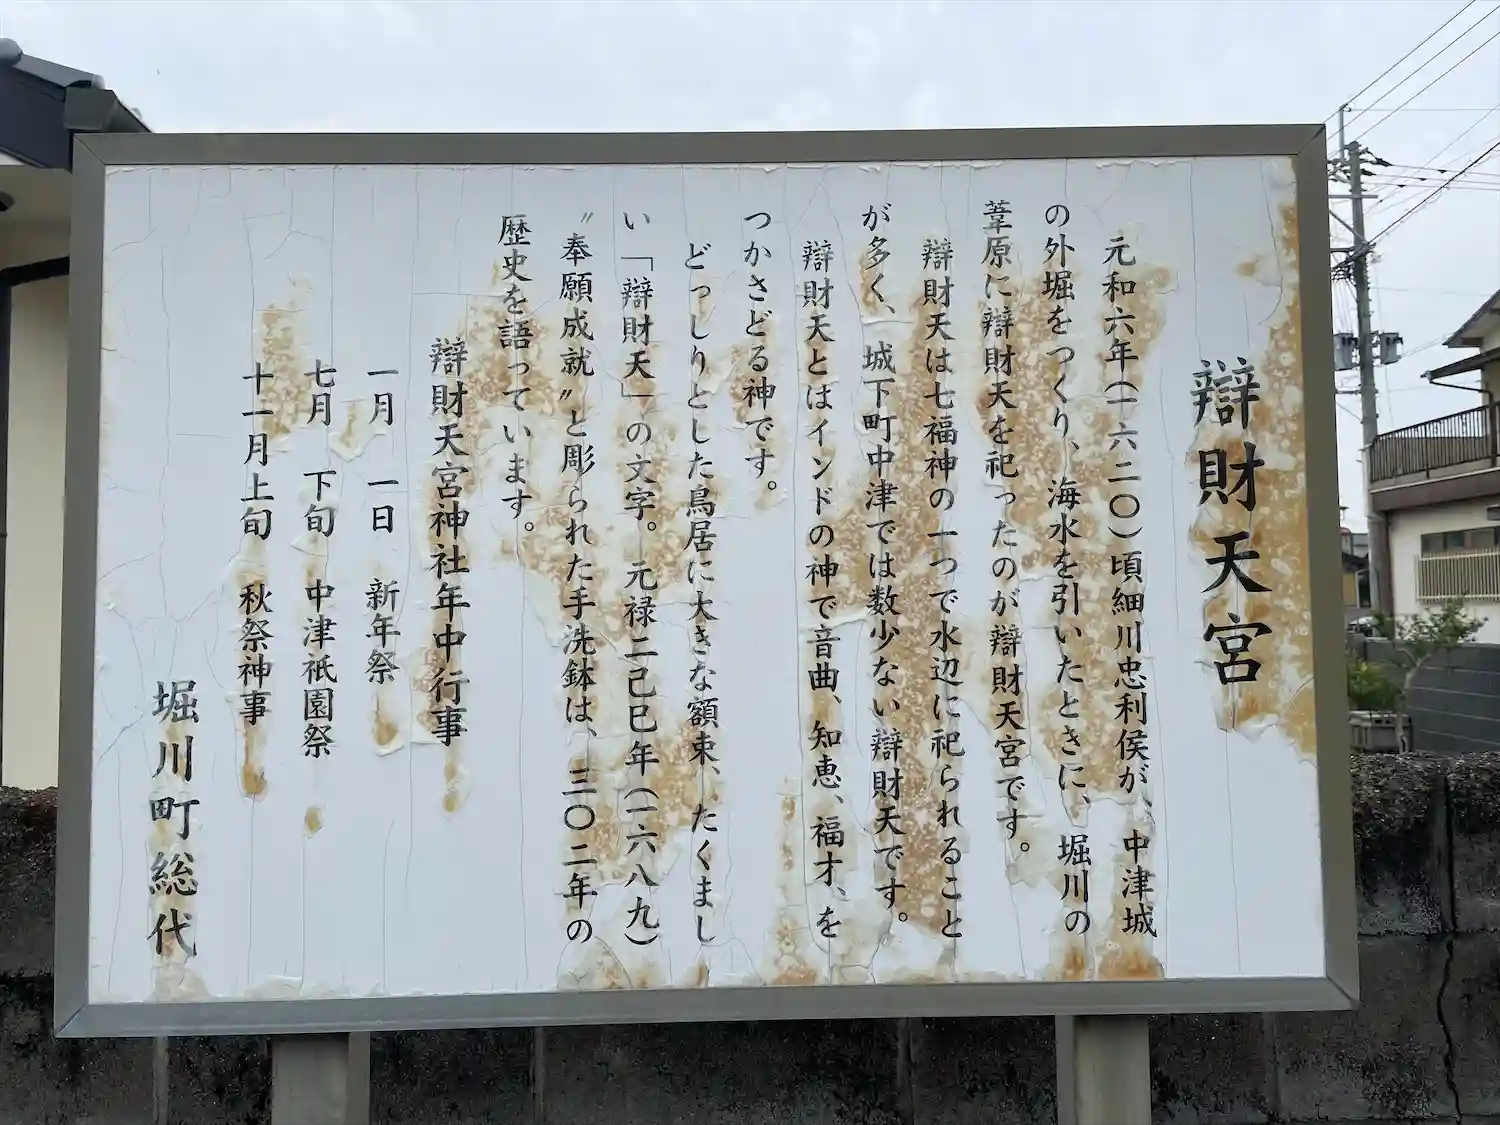 辯財天宮
元和六年(一六二〇)頃細川忠利侯が、中津城
の外堀をつくり、海水を引いたときに、堀川の
葦原に辯財天を祀ったのが辯財天宮です。
辯財天は七福神の一つで水辺に祀られること
が多く、城下町中津では数少ない辯財天です。
辯財天とはインドの神で音曲、知恵、福才、を
つかさどる神です。
どっしりとした鳥居に大きな額束、たくまし
い「辯財天」の文字。元禄二己巳年(一六八九)
〃奉願成就〃と彫られた手洗鉢は、三〇二年の
歴史を語っています。
辯財天宮神社年中行事
一月 一日 新年祭
七月 下旬 中津祇園祭
十一月上旬 秋祭神事
堀川町総代